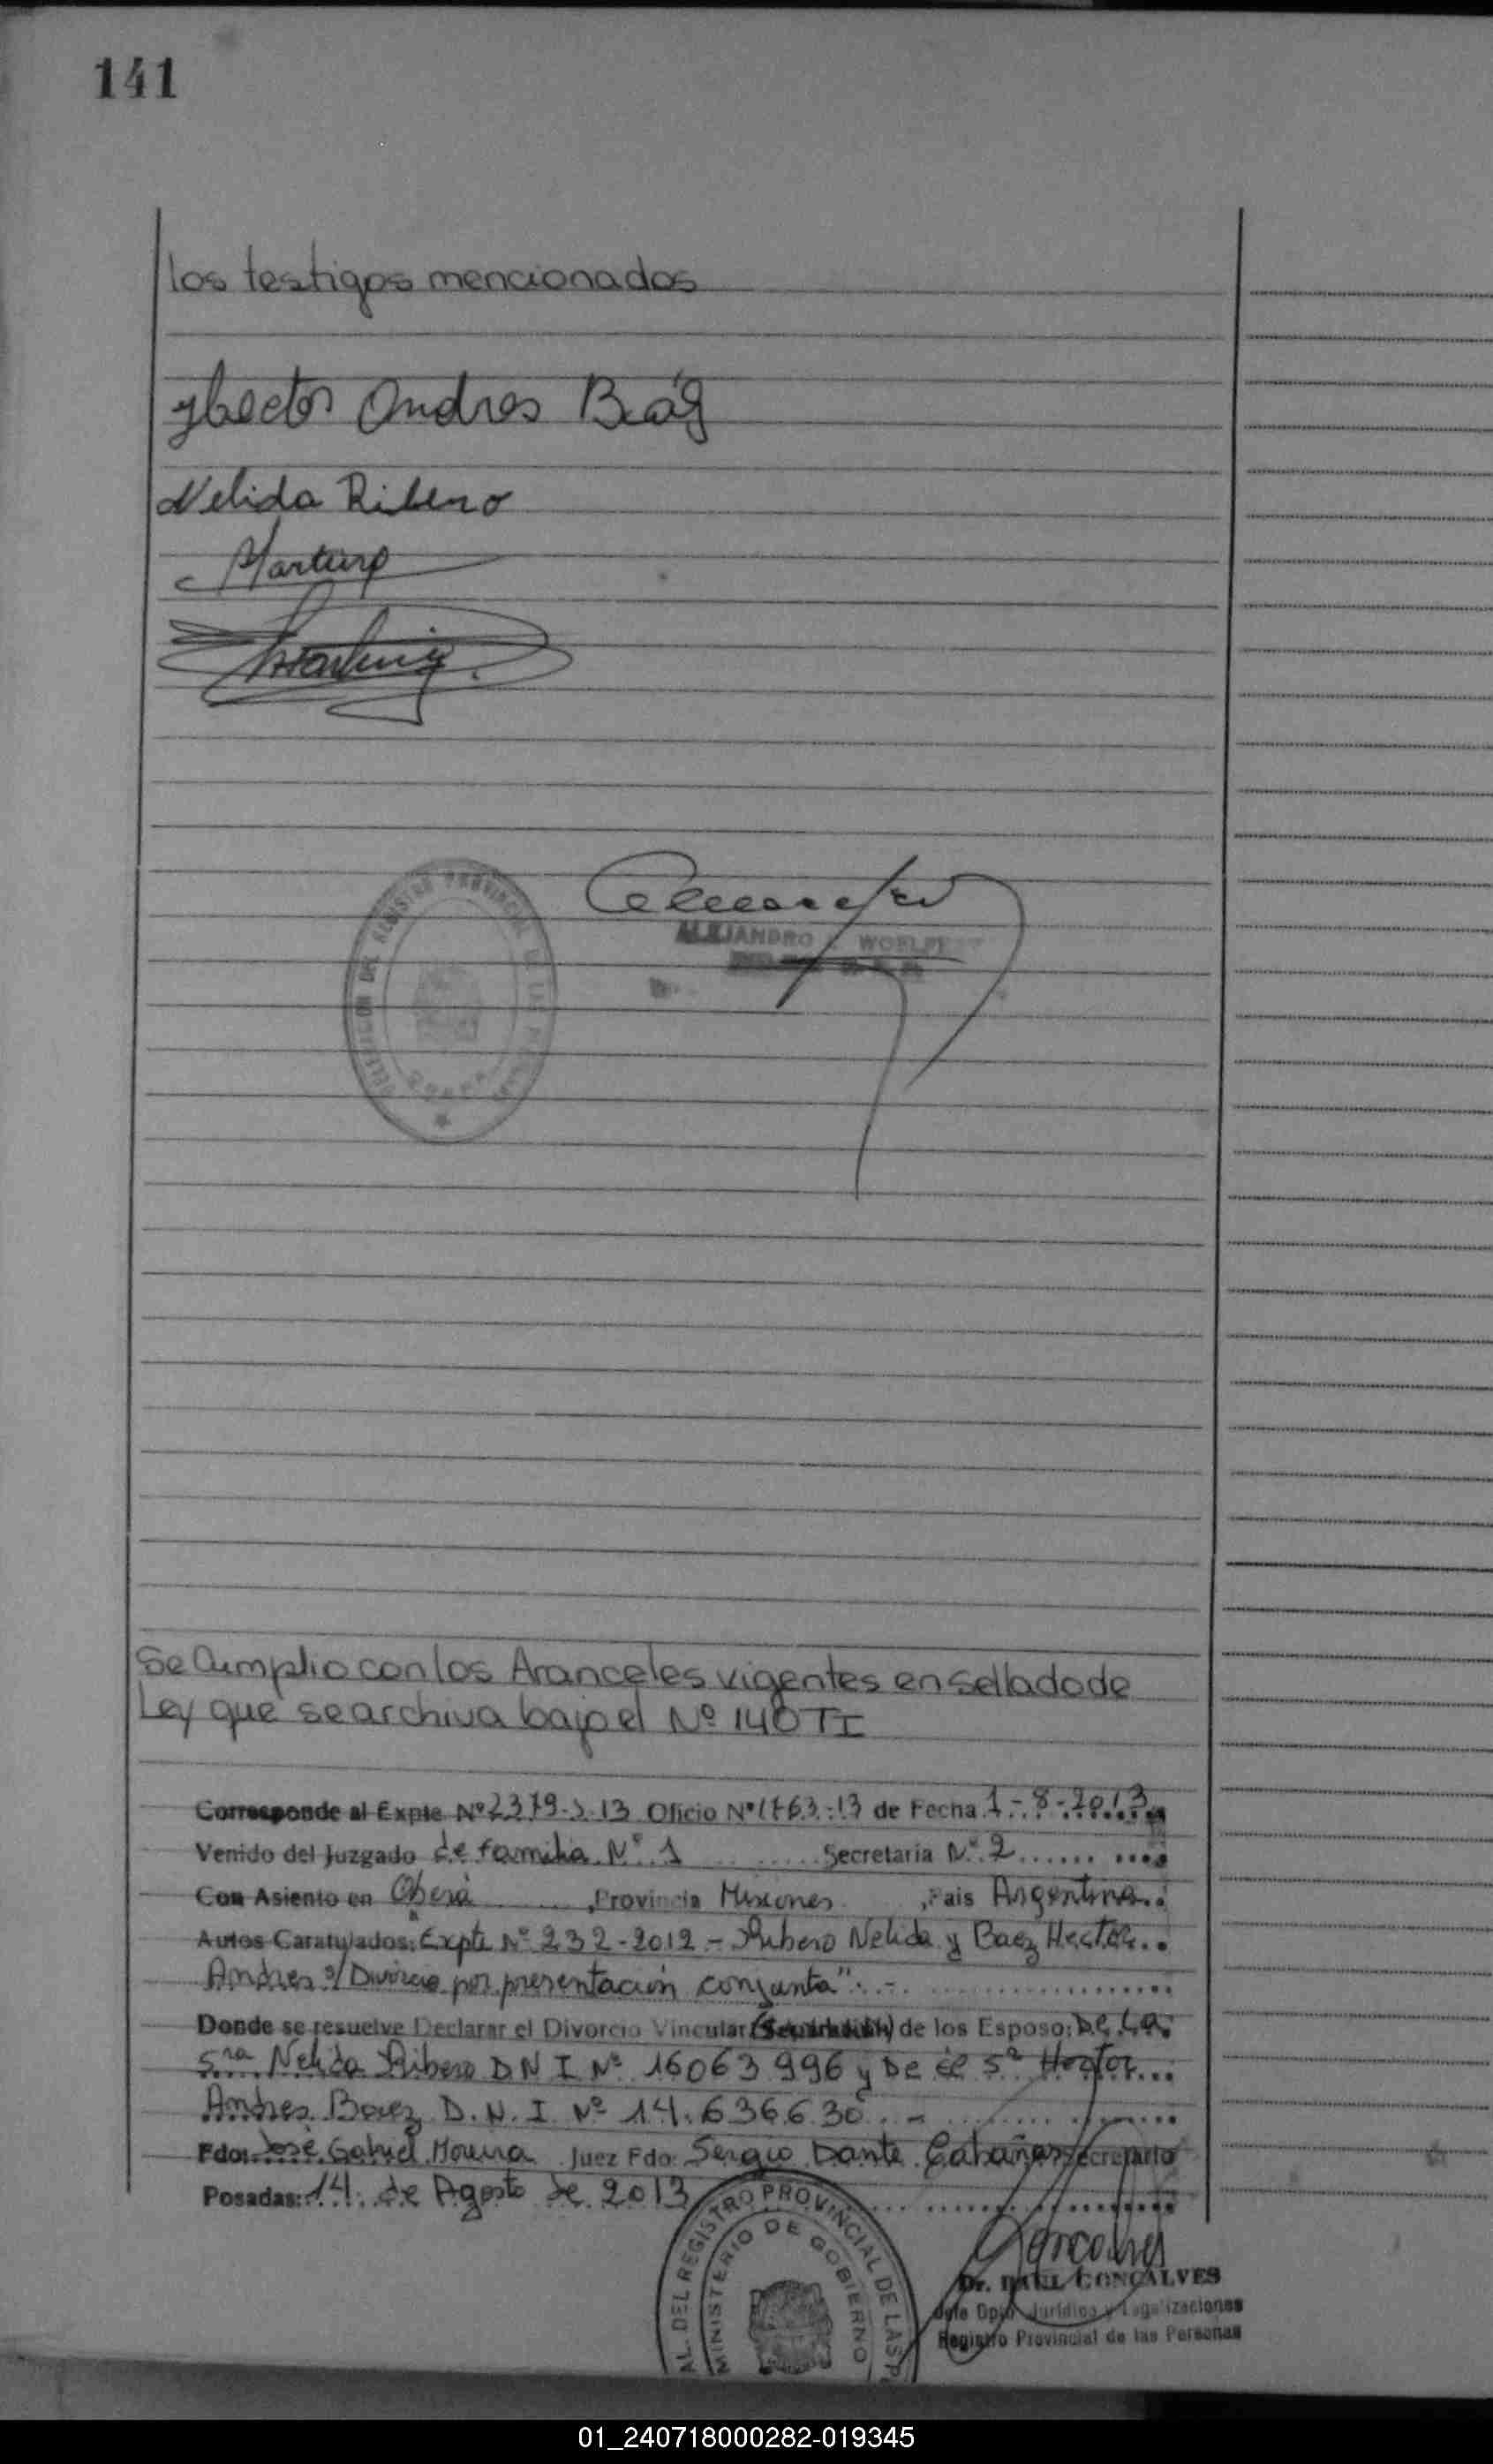 141
los testigos mencionados
Hector Andres Baéz
Nelida Ribero
ALEJANDRO WOELFERT
Se Cumplio con los Aranceles vigentes en Sellado de
Ley que se archiva bajo el Nº 140 TI
Corresponde al Expte Nº 2379-J-13 Oficio Nº 1763-13 de Fecha 1-8-2013
Venido del Juzgado de familia Nº 1 Secretaria Nº 2
Con Asiento en Oberá, Provincia Misiones, Pais Argentina
Autos Caratulados: Expte Nº 232-2012 - Ribero Nelida y Baez Hector
Andres s/ Divorcio por presentación conjunta"
Donde se resuelve Declarar el Divorcio Vincular de los Esposo: De La
Sra Nelida Ribero D N I Nº 16063996 y De el Sr Hector
Andres Baez D. N. I. Nº 14.636.630
Fdo: José Gabriel Moreira Juez Fdo: Sergio Dante Cabañas Secretario
Posadas: 14 de Agosto de 2013
AL DEL REGISTRO PROVINCIAL DE LAS P
MINISTERIO DE GOBIERNO
Dr. RAUL GONCALVES
Jefe Dpto. Jurídico y Legalizaciones
Registro Provincial de las Personas
01_240718000282-019345